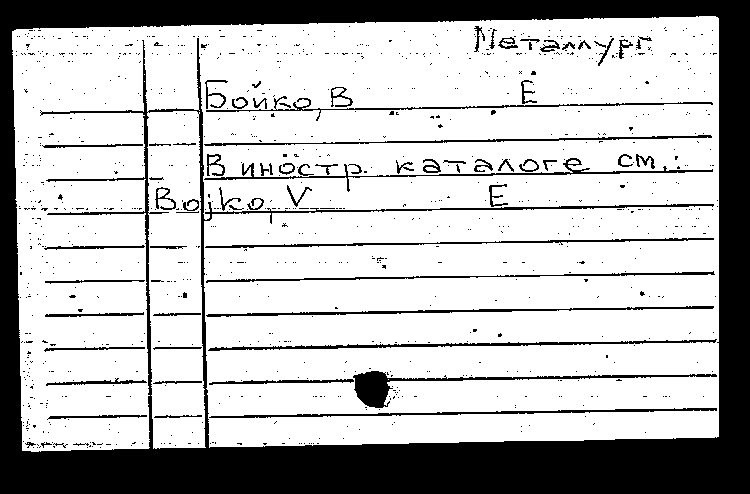 Металлург
Бойко, В Е
В иностр. каталоге см.:
Bojko, V E